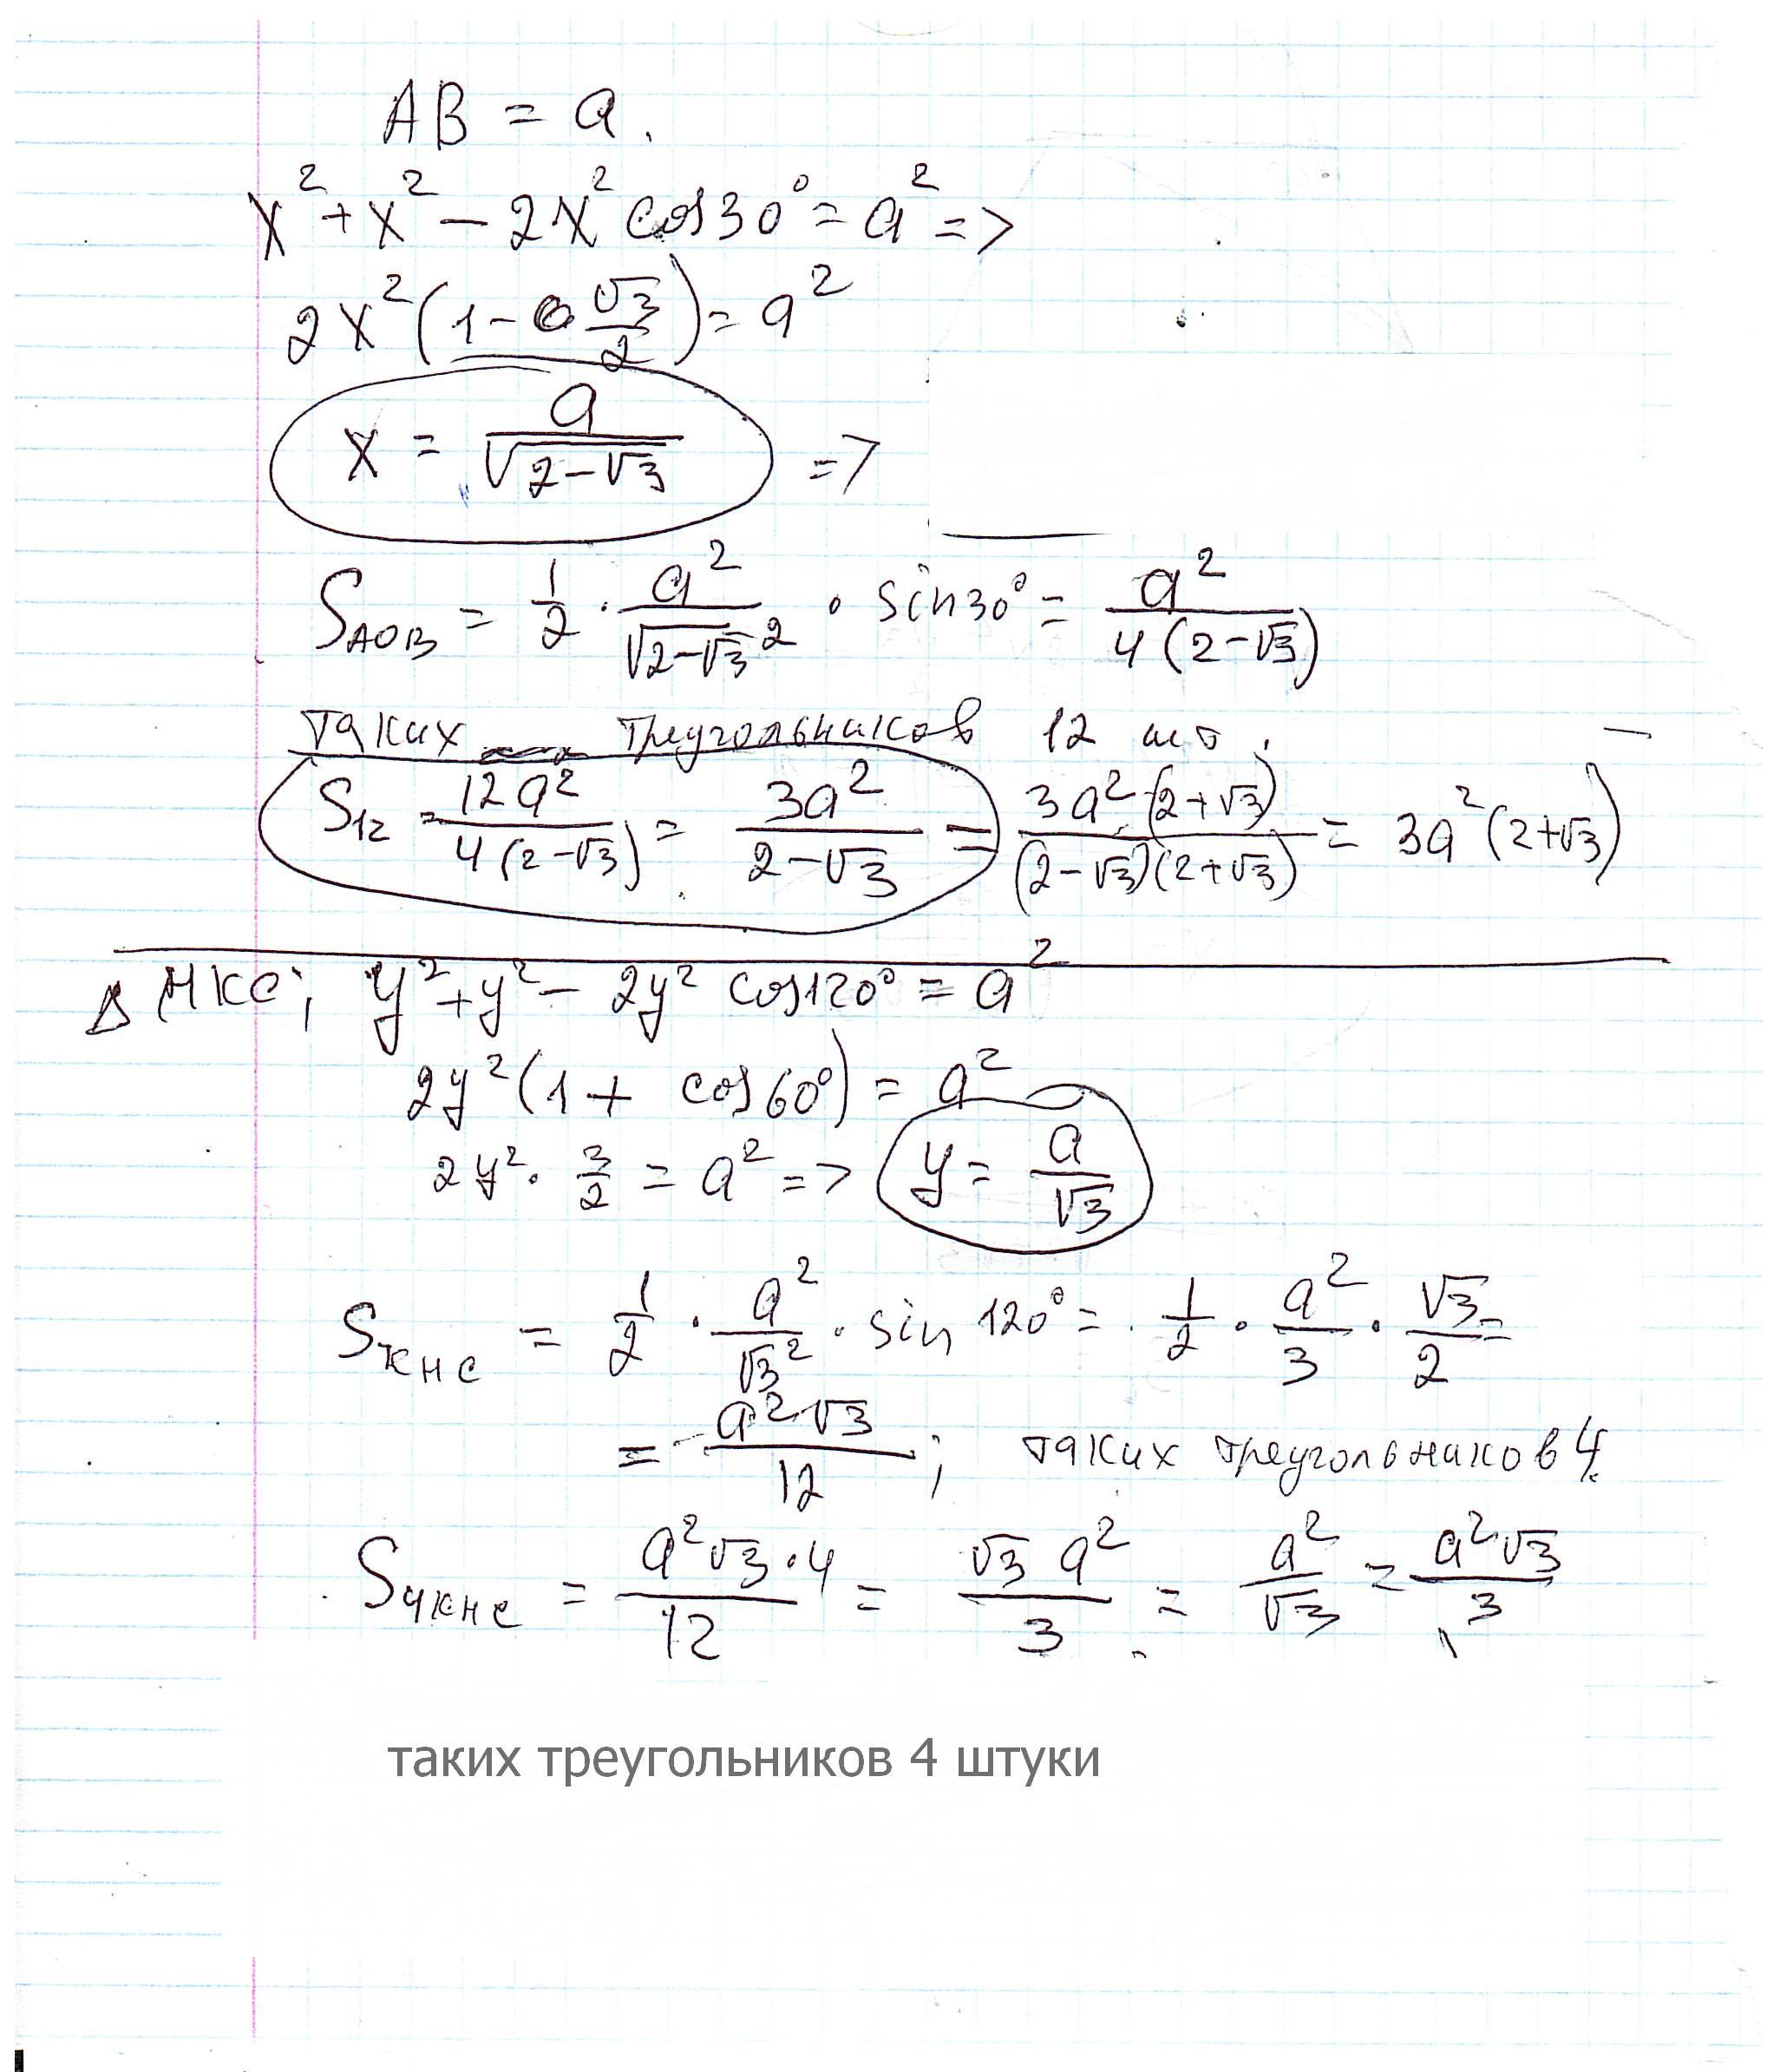 AB = a.
x² + x² − 2x² cos30° = a² =>
2x²(1 − √3/2) = a²
x = a/√(2−√3) =>
S_AOB = 1/2 · a²/√(2−√3)² · sin30° = a²/(4(2−√3))
таких треугольников 12 шт.
S₁₂ = 12a²/(4(2−√3)) = 3a²/(2−√3) = 3a²·(2+√3)/((2−√3)(2+√3)) = 3a²(2+√3)
Δ НКС; y² + y² − 2y² cos120° = a²
2y²(1 + cos60°) = a²
2y² · 3/2 = a² => y = a/√3
S_КНС = 1/2 · a²/√3² · sin 120° = 1/2 · a²/3 · √3/2 =
= a²√3/12; таких треугольников 4.
S_4КНС = a²√3·4/12 = √3 a²/3 = a²/√3 = a²√3/3
таких треугольников 4 штуки